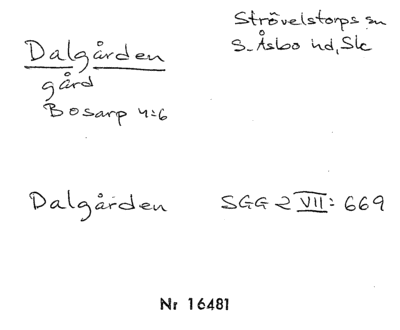 Strövelstorps sn
S. Åsbo hd, Sk
Dalgården
gård
Bosarp 4:6
Dalgården SGG 2 VII: 669
Nr 16481